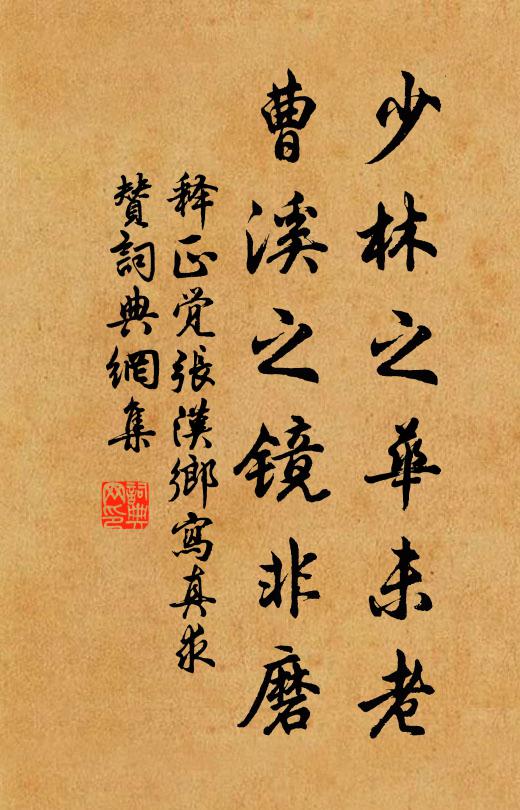 少林之華未老
曹溪之镜非磨
释正觉張漢鄉寫真求
赞詞典網集
詞典
网印